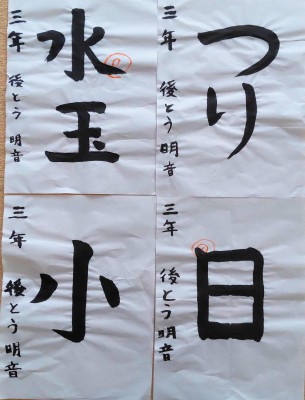 水玉
三年 後とう 明音
つり
三年 後とう 明音
小
三年 後とう 明音
日
三年 後とう 明音